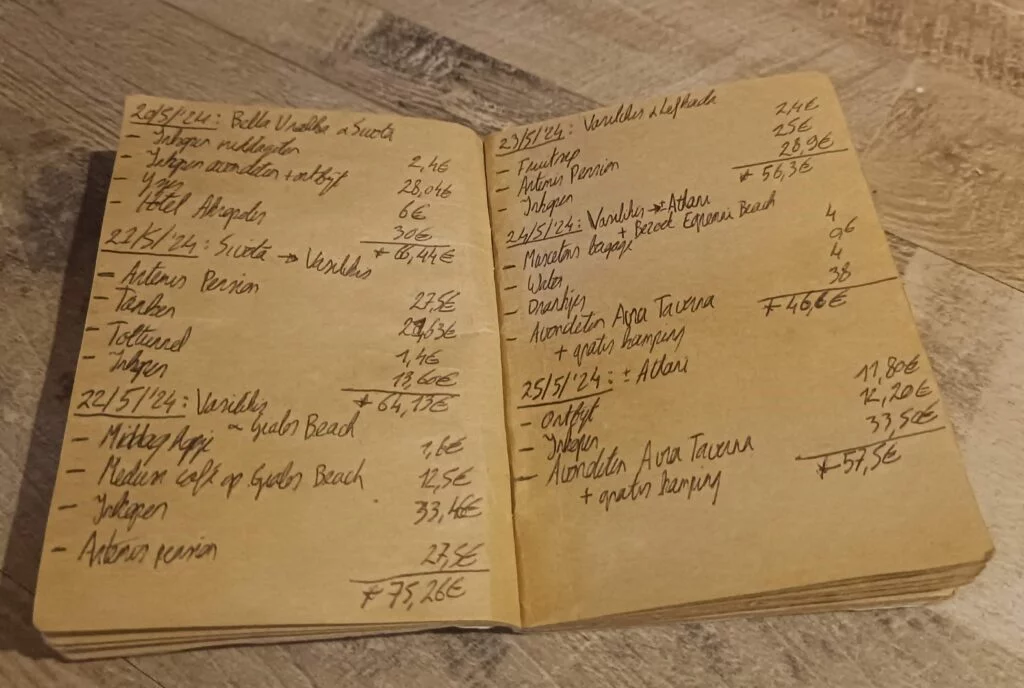 20/5/'24: Bella Vraka & Sivota
- Inkopen middageten 2,4€
- Inkopen avondeten + ontbijt 28,04€
- Ijs 6€
- Hotel Akropolis 30€
+ 66,44€
21/5/'24: Sivota → Vasilikis
- Artemis Pension 27,5€
- Tanken 21,63€
- Toltunnel 1,4€
- Inkopen 13,60€
+ 64,13€
22/5/'24: Vasilikis & Gialos Beach
- Middag 1,8€
- café op Gialos Beach 12,5€
- Inkopen 33,46€
- Artemis pension 27,5€
+ 75,26€
23/5/'24: Vasilikis & Lefkada
- Fruitsap 2,4€
- Artemis Pension 25€
- Inkopen 28,9€
+ 56,3€
24/5/'24: Vasilikis → ± Athani
+ Bezoek Egremni Beach
- bagage 4
- Water 0,6
- Drankjes 4
- Avondeten Avra Taverna 38
+ gratis kamping
+ 46,6€
25/5/'24: ± Athani
- Ontbijt 11,80€
- Inkopen 12,20€
- Avondeten Avra Taverna 33,50€
+ gratis kamping
+ 57,5€